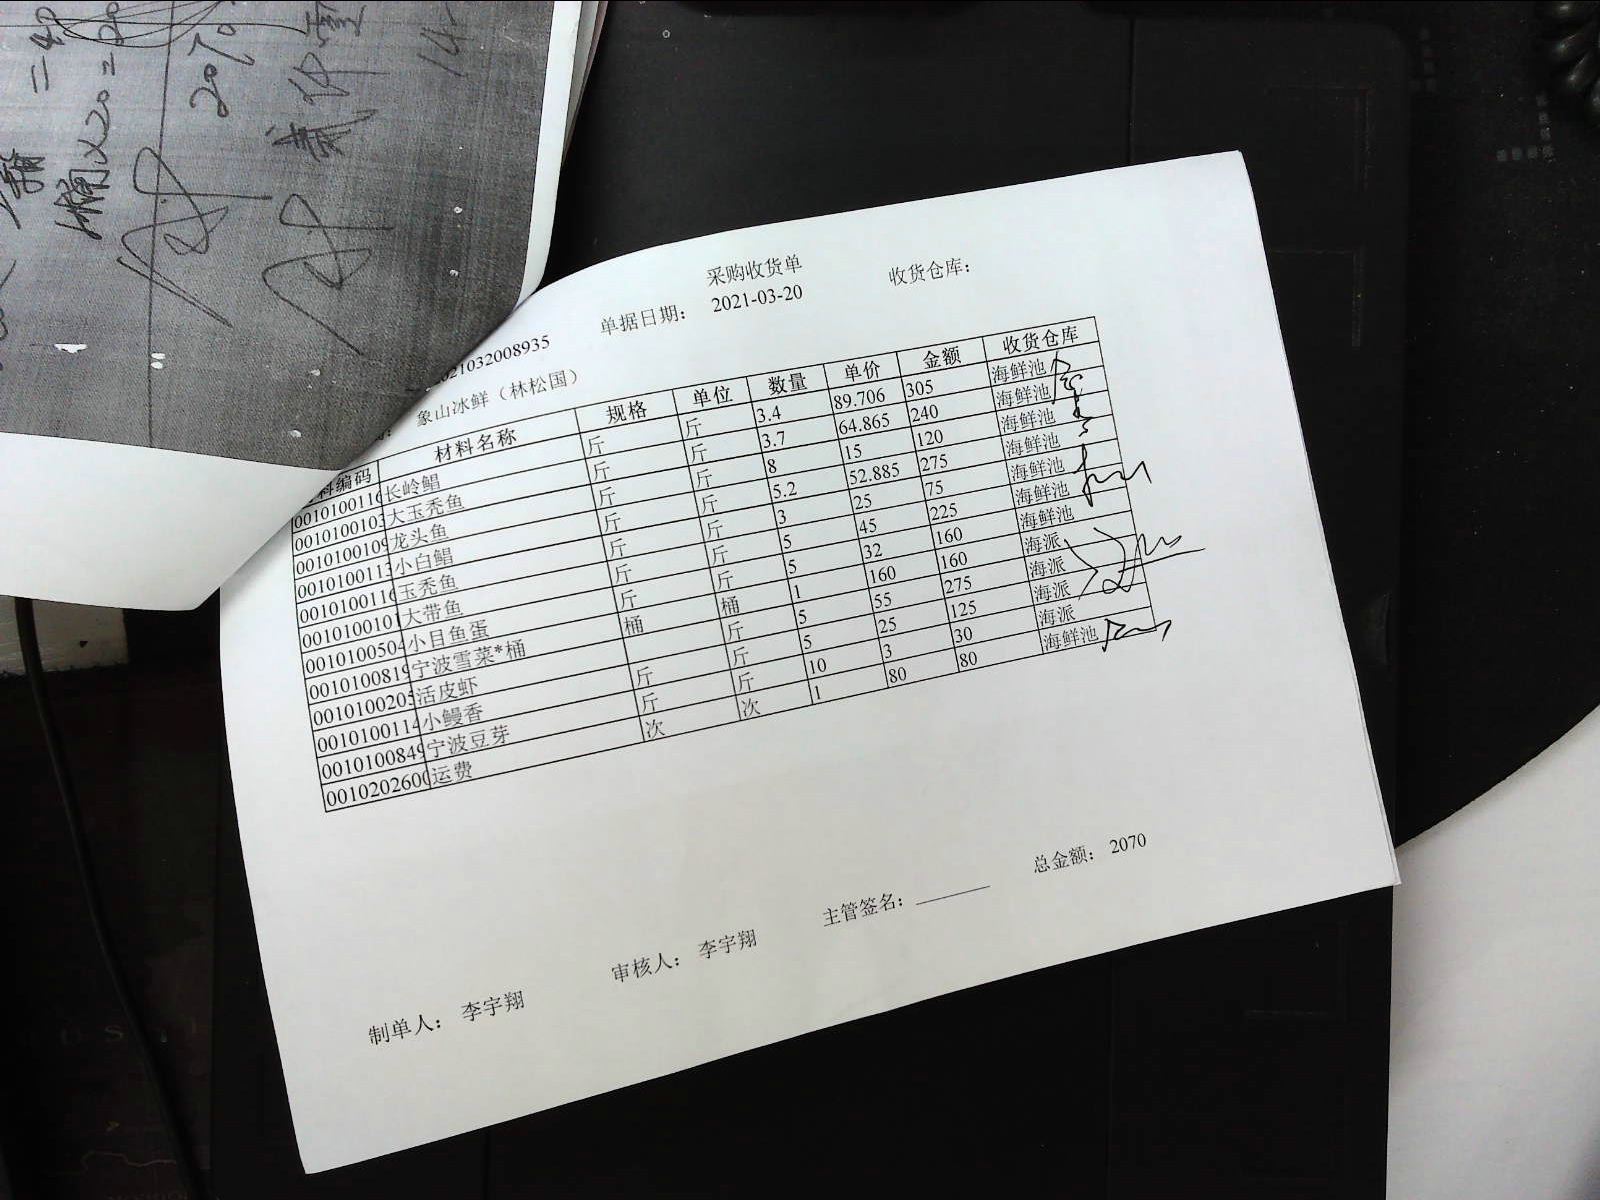 采购收货单
21032008935 单据日期： 2021-03-20 收货仓库：
象山冰鲜（林松国）
料编码 材料名称 规格 单位 数量 单价 金额 收货仓库
001010011 长岭鲳 斤 斤 3.4 89.706 305 海鲜池
001010010 大玉秃鱼 斤 斤 3.7 64.865 240 海鲜池
001010010 龙头鱼 斤 斤 8 15 120 海鲜池
001010011 小白鲳 斤 斤 5.2 52.885 275 海鲜池
001010011 玉秃鱼 斤 斤 3 25 75 海鲜池
001010010 大带鱼 斤 斤 5 45 225 海鲜池
001010050 小目鱼蛋 斤 斤 5 32 160 海鲜池
001010081 宁波雪菜*桶 桶 桶 1 160 160 海派
001010020 活皮虾 斤 5 55 275 海派
001010011 小鳗香 斤 斤 5 25 125 海派
001010084 宁波豆芽 斤 斤 10 3 30 海派
001020260 运费 次 次 1 80 80 海鲜池
总金额： 2070
制单人： 李宇翔 审核人： 李宇翔 主管签名：